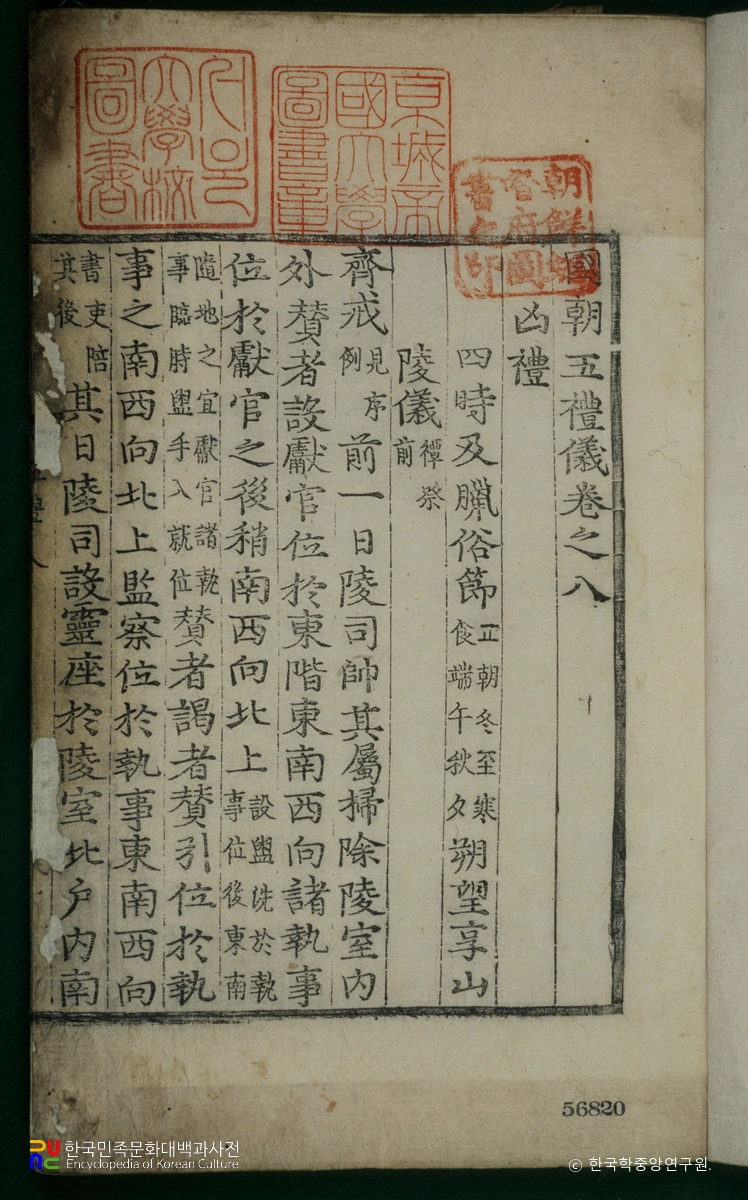 서울大學校圖書
京城帝國大學圖書章
朝鮮總督府圖書之印
國朝五禮儀卷之八
凶禮
四時及臘俗節正朝冬至寒食端午秋夕朔望享山
陵儀禫祭前
齊戒見序例前一日陵司帥其屬掃除陵室內
外贊者設獻官位於東階東南西向諸執事
位於獻官之後稍南西向北上設盥洗於執事位後東南
隨地之宜獻官諸執事臨時盥手入就位贊者謁者贊引位於執
事之南西向北上監察位於執事東南西向
書吏陪其後其日陵司設靈座於陵室北户內南
56820
한국민족문화대백과사전
Encyclopedia of Korean Culture
© 한국학중앙연구원.